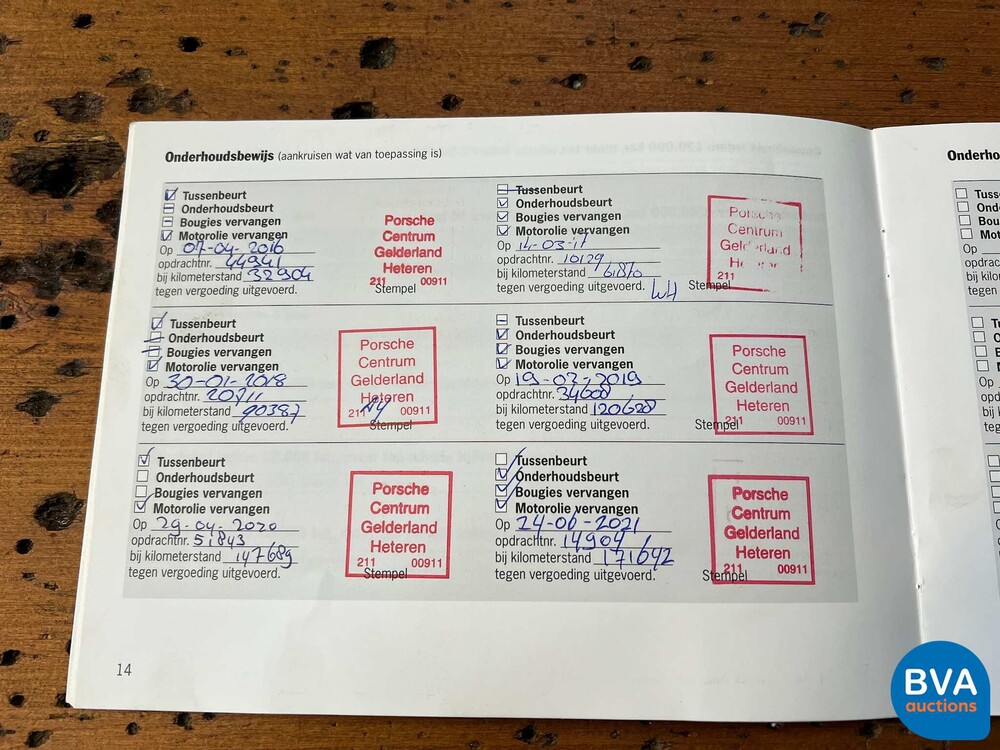 Onderhoudsbewijs (aankruisen wat van toepassing is)
Tussenbeurt
Onderhoudsbeurt
Bougies vervangen
Motorolie vervangen
Op 07-04-2016
opdrachtnr. 44941
bij kilometerstand 32904
tegen vergoeding uitgevoerd.
Porsche
Centrum
Gelderland
Heteren
211 00911
Stempel
Tussenbeurt
Onderhoudsbeurt
Bougies vervangen
Motorolie vervangen
Op 14-03-17
opdrachtnr. 10129
bij kilometerstand 61870
tegen vergoeding uitgevoerd.
WH
Porsche
Centrum
Gelderland
211
Stempel
Tussenbeurt
Onderhoudsbeurt
Bougies vervangen
Motorolie vervangen
Op 30-01-2018
opdrachtnr. 20711
bij kilometerstand 90387
tegen vergoeding uitgevoerd.
Porsche
Centrum
Gelderland
Heteren
211 00911
Stempel
Tussenbeurt
Onderhoudsbeurt
Bougies vervangen
Motorolie vervangen
Op 19-03-2019
opdrachtnr. 34608
bij kilometerstand 120628
tegen vergoeding uitgevoerd.
Porsche
Centrum
Gelderland
Heteren
211 00911
Stempel
Tussenbeurt
Onderhoudsbeurt
Bougies vervangen
Motorolie vervangen
Op 29-04-2020
opdrachtnr. 51843
bij kilometerstand 147689
tegen vergoeding uitgevoerd.
Porsche
Centrum
Gelderland
Heteren
211 00911
Stempel
Tussenbeurt
Onderhoudsbeurt
Bougies vervangen
Motorolie vervangen
Op 24-06-2021
opdrachtnr. 14904
bij kilometerstand 171642
tegen vergoeding uitgevoerd.
Porsche
Centrum
Gelderland
Heteren
211 00911
Stempel
14
BVA
auctions